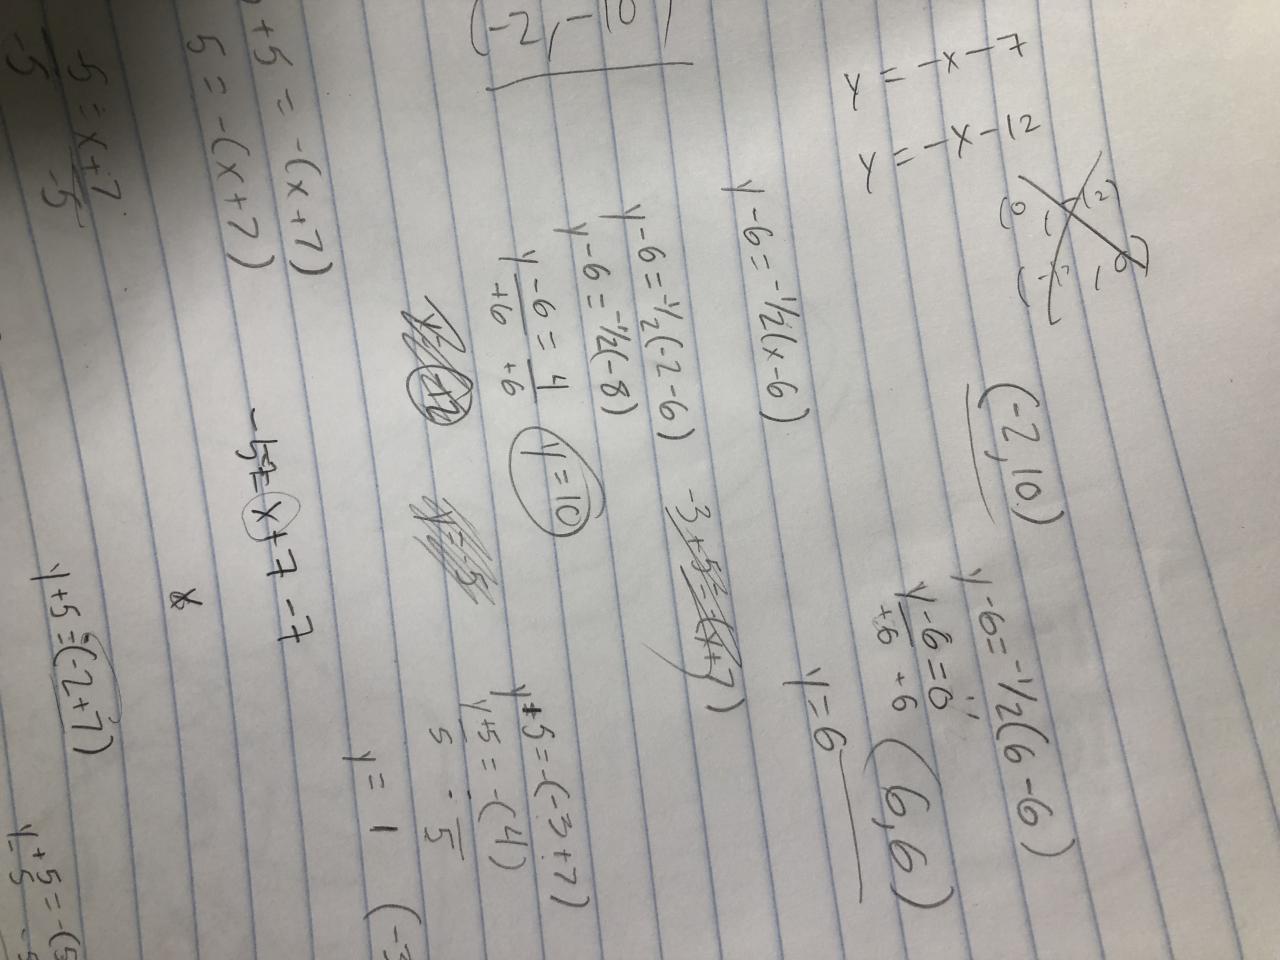 y = -x - 7
y = -x - 12
(-2, 10)
y - 6 = -1/2(6 - 6)
y - 6 = 0
+6 +6
(6,6)
y = 6
y - 6 = -1/2(x - 6)
y - 6 = -1/2(-2 - 6)
y - 6 = -1/2(-8)
y - 6 = 4
+6 +6
y = 10
-3 + 5 = -(x + 7)
y + 5 = -(-3 + 7)
y + 5 = -(4)
5 - 5
y = 1
(-2, -10
+5 = -(x + 7)
5 = -(x + 7)
5 = x + 7
-5 -5
-5 = x + 7 - 7
x
y + 5 = -(-2 + 7)
y + 5 = -(5